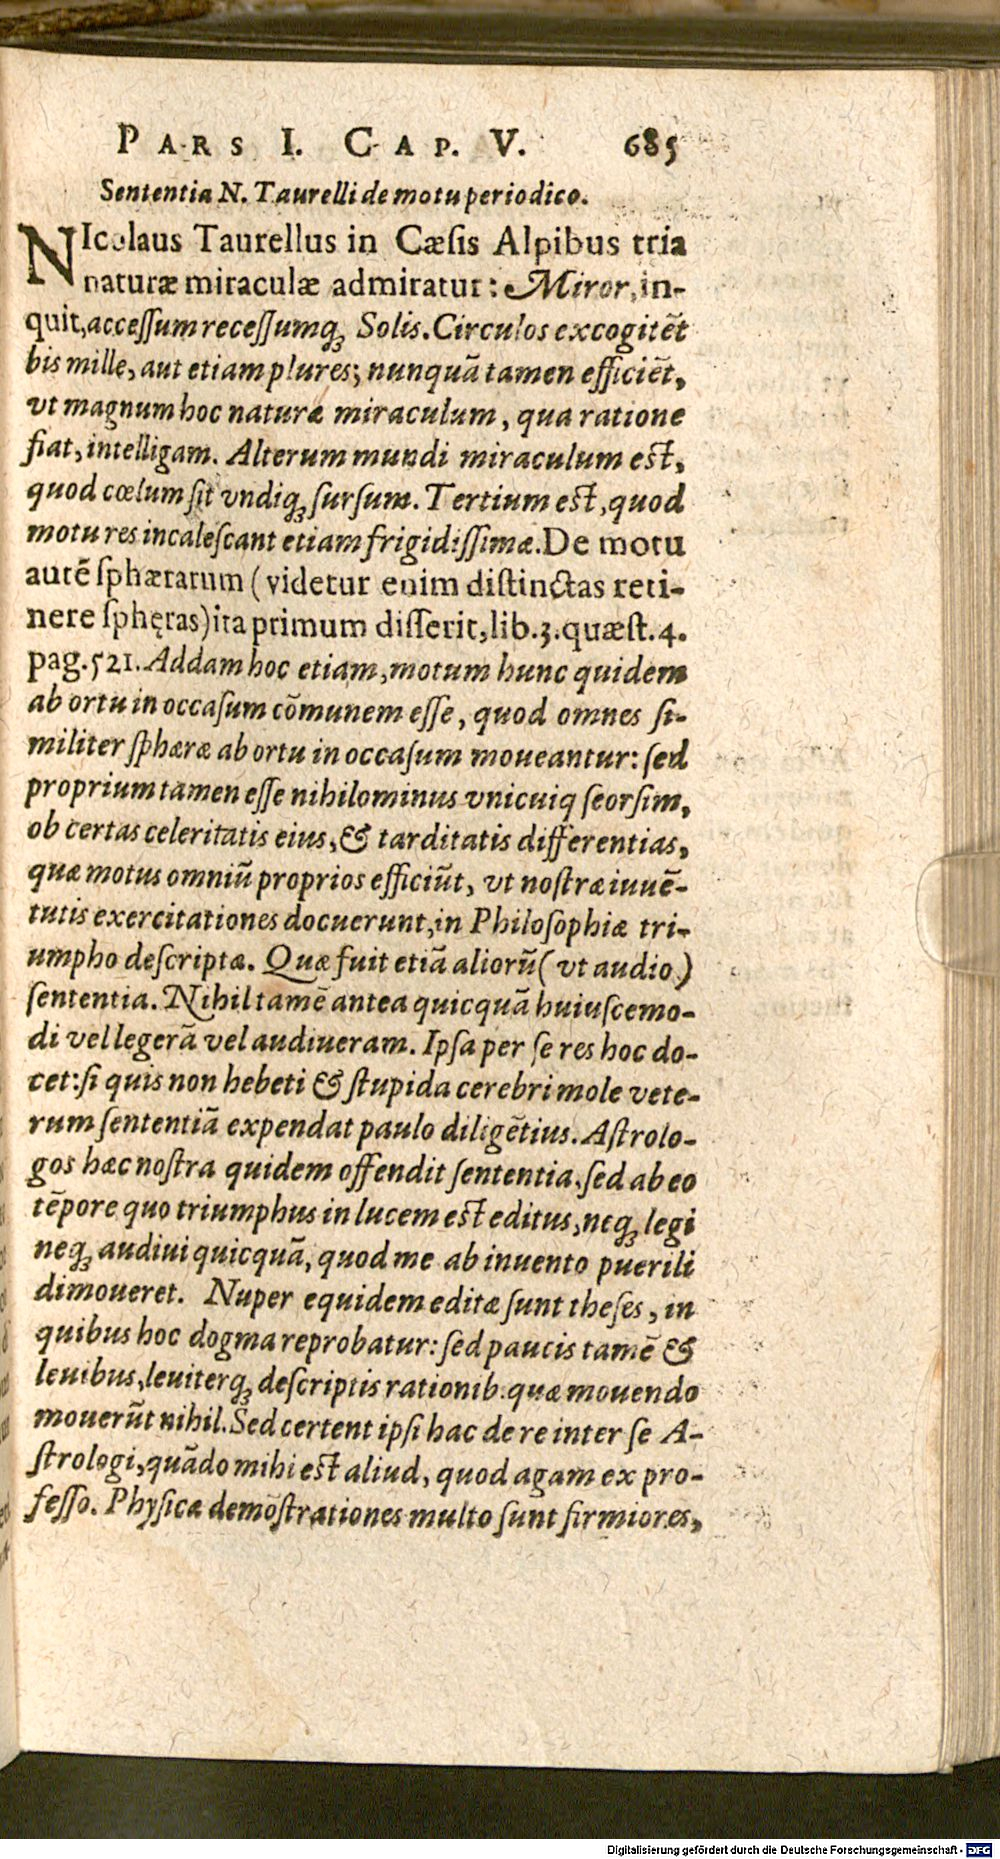 PARS I. CAP. V. 685
Sententia N. Taurelli de motu periodico.
NIcolaus Taurellus in Cæsis Alpibus tria
naturæ miraculæ admiratur: Miror, in-
quit, accessum recessumq; Solis. Circulos excogitēt
bis mille, aut etiam plures; nunquā tamen efficiēt,
vt magnum hoc naturæ miraculum, qua ratione
fiat, intelligam. Alterum mundi miraculum est,
quod cœlum sit vndiq; sursum. Tertium est, quod
motu res incalescant etiam frigidissimæ. De motu
autē sphærarum (videtur enim distinctas reti-
nere sphęras) ita primum disserit, lib. 3. quæst. 4.
pag. 521. Addam hoc etiam, motum hunc quidem
ab ortu in occasum cōmunem esse, quod omnes si-
militer sphæræ ab ortu in occasum moueantur: sed
proprium tamen esse nihilominus vnicuiq seorsim,
ob certas celeritatis eius, & tarditatis differentias,
quæ motus omniū proprios efficiūt, vt nostræ iuuē-
tutis exercitationes docuerunt, in Philosophiæ tri-
umpho descriptæ. Quæ fuit etiā aliorū (vt audio)
sententia. Nihil tamē antea quicquā huiuscemo-
di vel legerā vel audiueram. Ipsa per se res hoc do-
cet: si quis non hebeti & stupida cerebri mole vete-
rum sententiā expendat paulo diligētius. Astrolo-
gos hæc nostra quidem offendit sententia, sed ab eo
tēpore quo triumphus in lucem est editus, neq; legi
neq; audiui quicquā, quod me ab inuento puerili
dimoueret. Nuper equidem editæ sunt theses, in
quibus hoc dogma reprobatur: sed paucis tamē &
leuibus, leuiterq; descriptis rationib. quæ mouendo
mouerūt nihil. Sed certent ipsi hac de re inter se A-
strologi, quādo mihi est aliud, quod agam ex pro-
fesso. Physicæ demōstrationes multo sunt firmiores,
Digitalisierung gefördert durch die Deutsche Forschungsgemeinschaft - DFG